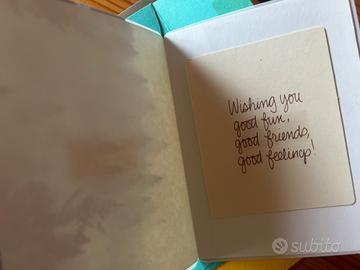 Wishing you
good fun,
good friends,
good feelings!
subito